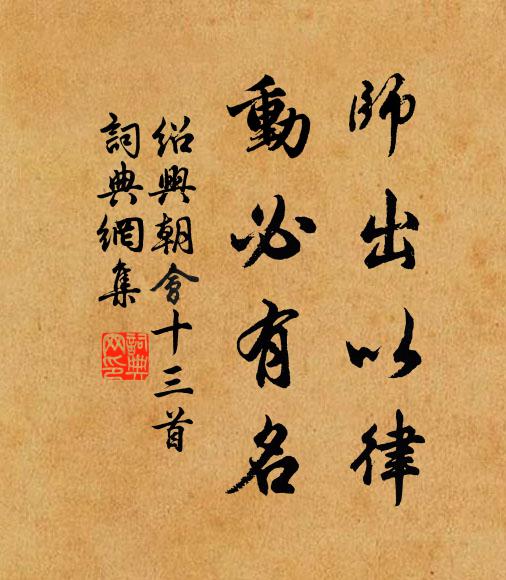 師出以律
動必有名
紹興朝會十三首
詞典網集
詞典
網印